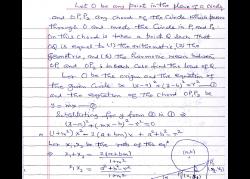 Let O be any point in the plane of a circle
and OP₁P₂ any chord of the circle which passes
through O and meets the circle in P₁ and P₂
On this chord is taken a point Q such that
OQ is equal to (1) the arithmetic (2) the
geometric, and (3) the harmonic mean between
OP₁ and OP₂ in each case find the locus of Q
Let O be the origin and the equation of
the given circle is (x-a)²+(y-b)²=r² ①
and the equation of the chord OP₁P₂ be
y = mx ②
Substituting from ② in ①
(x-a)²+(mx-b)²-r²=0
(1+m²)x²-2(a+bm)x+a²+b²-r²
Let x₁, x₂ be the roots of the eqn
x₁+x₂ = 2(a+bm)
1+m²
x₁x₂ = a²+b²-r²
1+m²
(a,b)
P₂
P₁